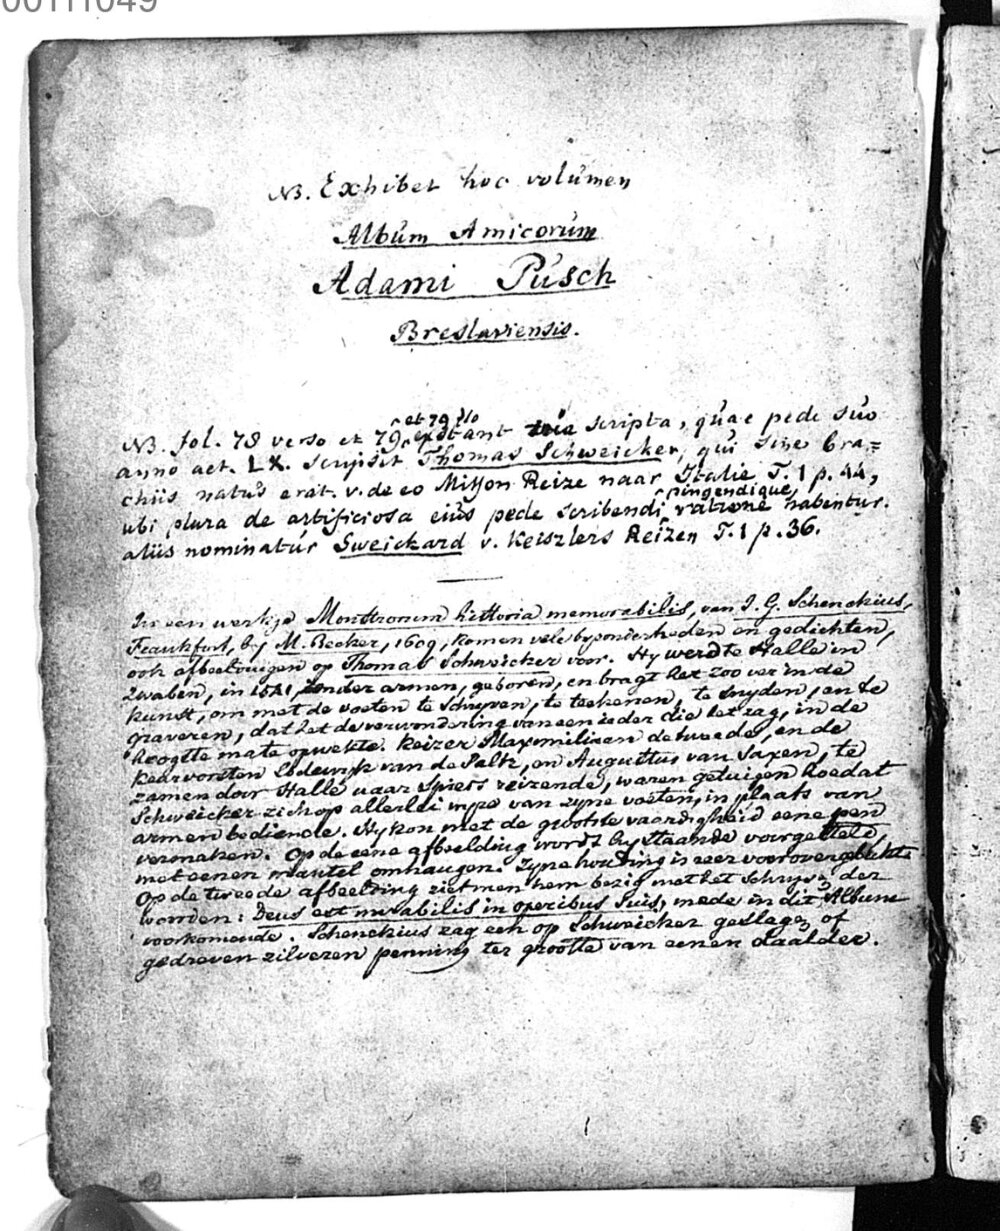 00111049
NB. Exhibet hoc volumen
Album Amicorum
Adami Pusch
Breslaviensis.
NB. fol. 78 verso et 79, et 79 vo exstant tria scripta, quae pede suo
anno aet. LX. scripsit Thomas Schweicker, qui sine bra-
chiis natus erat. v. de eo Misson Reize naar Italie T. 1 p. 44,
ubi plura de artificiosa eius pede scribendi pingendique ratione habentur.
aliis nominatur Sweickard v. Keiszlers Reizen T. 1 p. 36.
In een werkje Monstrorum historia memorabilis, van J. G. Schenckius,
Frankfurt, by M. Becker, 1609, komen vele byzonderheden en gedichten,
ook afbeeldingen op Thomas Schweicker voor. Hy werd te Halle in
Zwaben, in 1541, zonder armen, geboren, en bragt het zoo ver in de
kunst, om met de voeten te schryven, te teekenen, te snyden, en te
graveren, dat het de verwondering van een ieder die het zag, in de
hoogste mate opwekte. Keizer Maximiliaen de tweede, en de
Keurvorsten Lodewyk van de Paltz, en Augustus van Saxen, te
zamen door Halle naar Spiers reizende, waren getuigen hoedat
Schweicker zich op allerlei wyze van zyne voeten, in plaats van
armen bediende. Hy kon met de grootste vaardigheid eene pen
vermaken. Op de eene afbeelding wordt hy staande voorgesteld,
met eenen mantel omhangen. Zyne houding is zeer voorovergebukt
Op de tweede afbeelding ziet men hem bezig met het schryven der
woorden: Deus est mirabilis in operibus suis, mede in dit Album
voorkomende. Schenckius zag een op Schweicker geslagen of
gedreven zilveren penning ter grootte van eenen daalder.